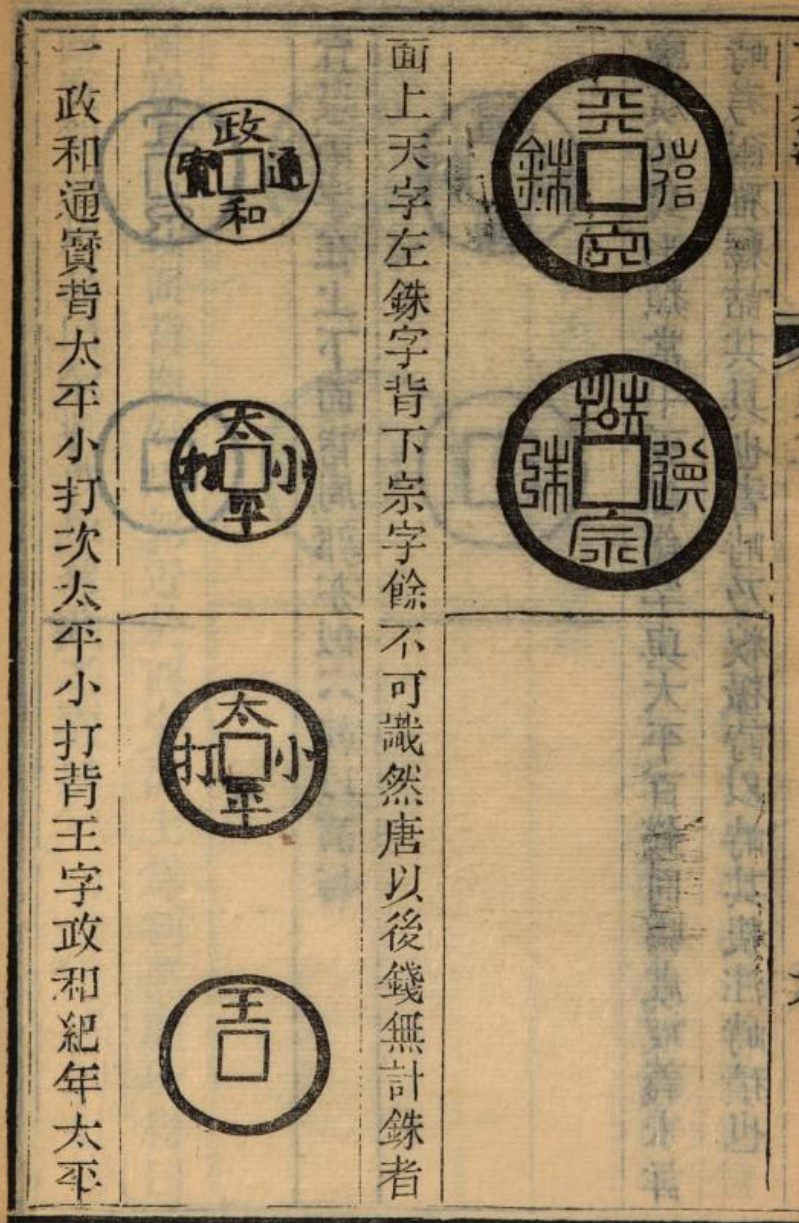 銖
宗
面上天字左銖字背下宗字餘不可識然唐以後錢無計銖者
政和通寳
太平小打
太平小打
王
一政和通寳背太平小打次太平小打背王字政和紀年太平